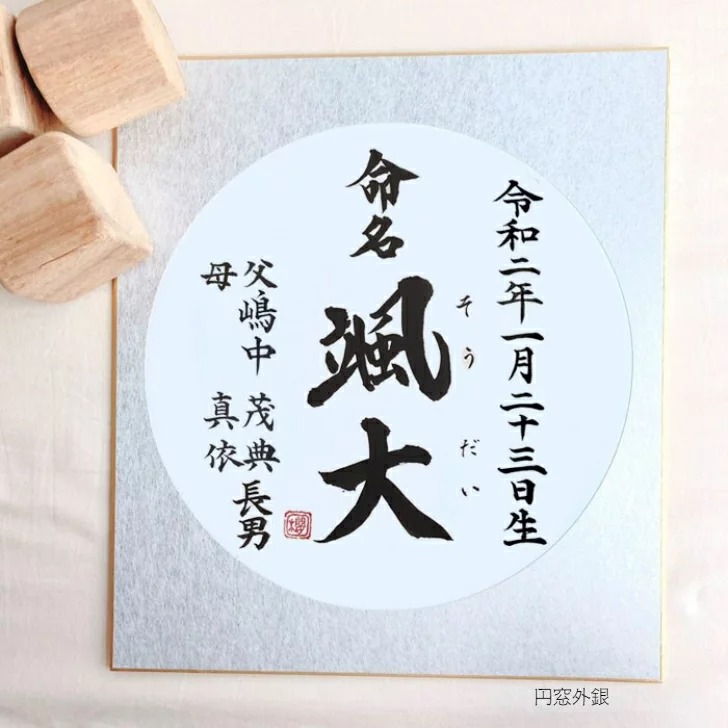 令和二年一月二十三日生
そうだい
命名
颯大
父嶋中 茂典 長男
母 真依
円窓外銀